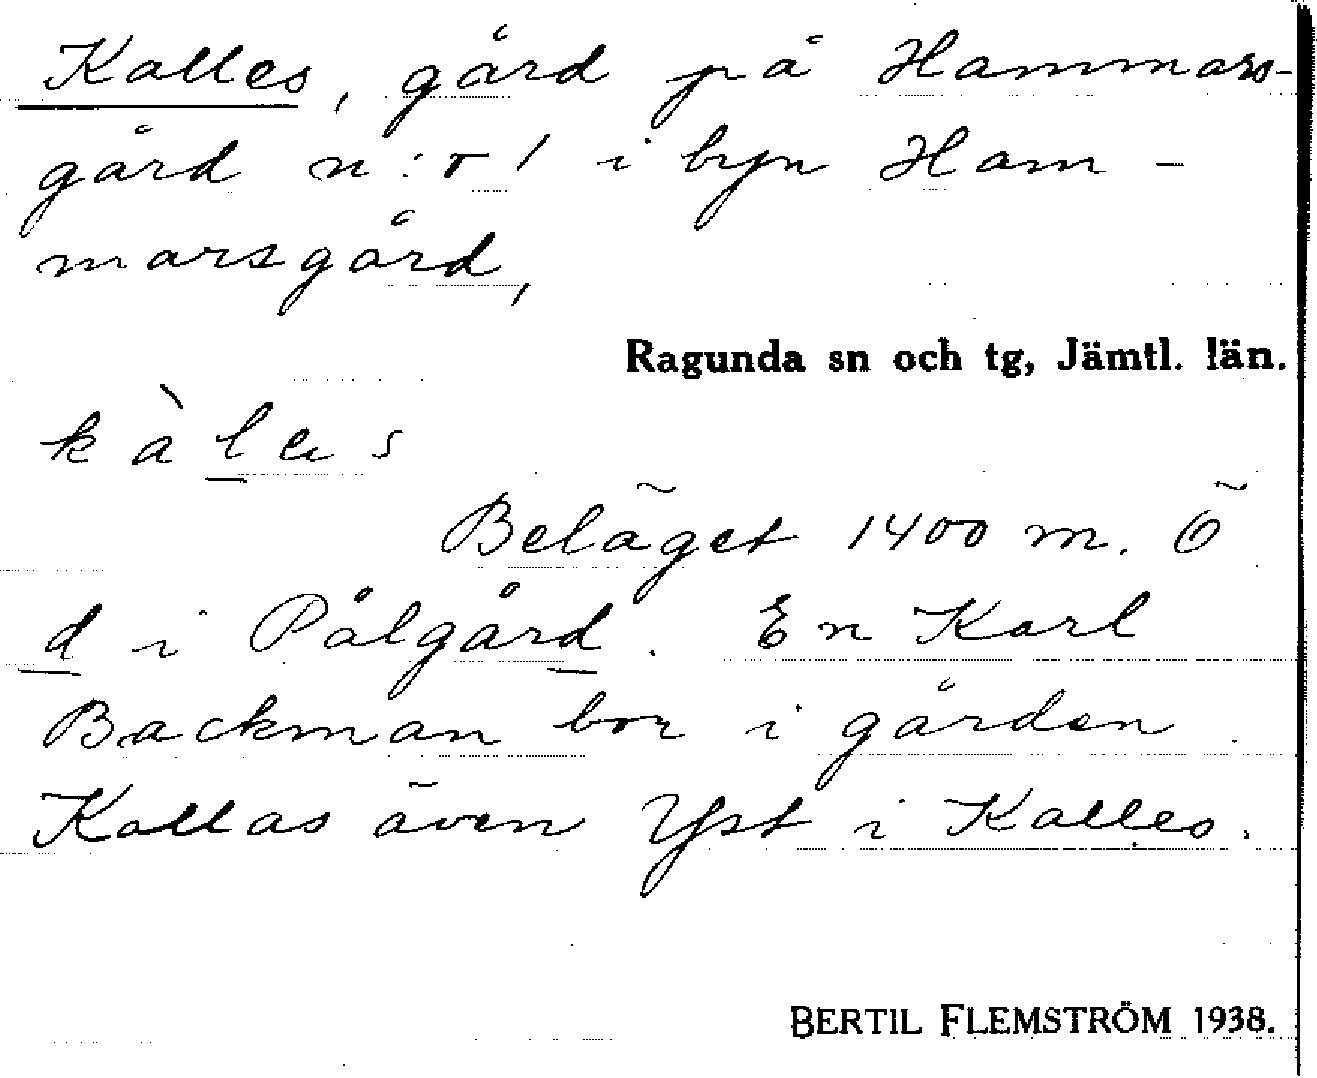 Kalles, gård på Hammars-
gård n:r 1 i byn Ham-
marsgård,
Ragunda sn och tg, Jämtl. län.
Beläget 1400 m. Ö
d i Pålgård. En Karl
Backman bor i gården.
Kallas även Yst i Kalles.
BERTIL FLEMSTRÖM 1938.